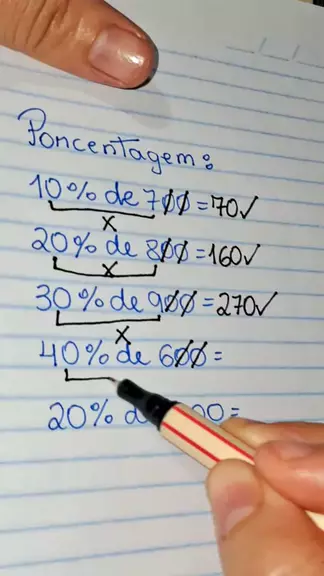 Porcentagem:
10% de 700 = 70✓
x
20% de 800 = 160✓
x
30% de 900 = 270✓
x
40% de 600 =
20% 00 =